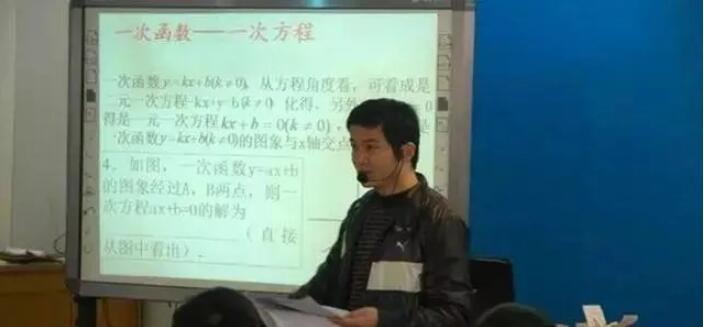 一次函数——一次方程
一次函数y=kx+b(k≠0),从方程角度看,可看成是
二元一次方程-kx+y=b(k≠0)化得,另外
得是一元一次方程kx+b=0(k≠0),是
一次函数y=kx+b(k≠0)的图象与x轴交点
4、如图,一次函数y=ax+b
的图象经过A、B两点,则一
次方程ax+b=0的解为
(直接
从图中看出).